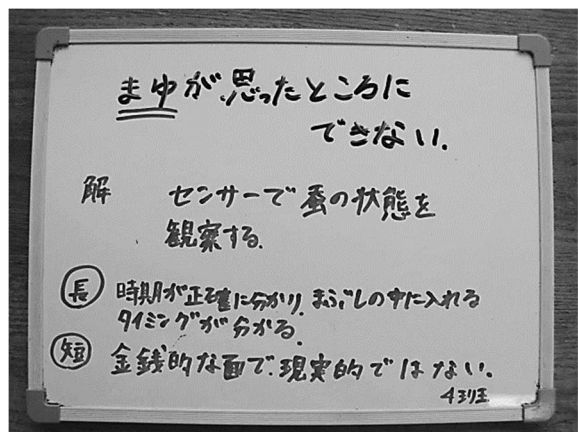 まゆが思ったところに
できない.
解 センサーで蚕の状態を
観察する.
長 時期が正確に分かり,まぶしの中に入れる
タイミングが分かる.
短 金銭的な面で、現実的ではない.